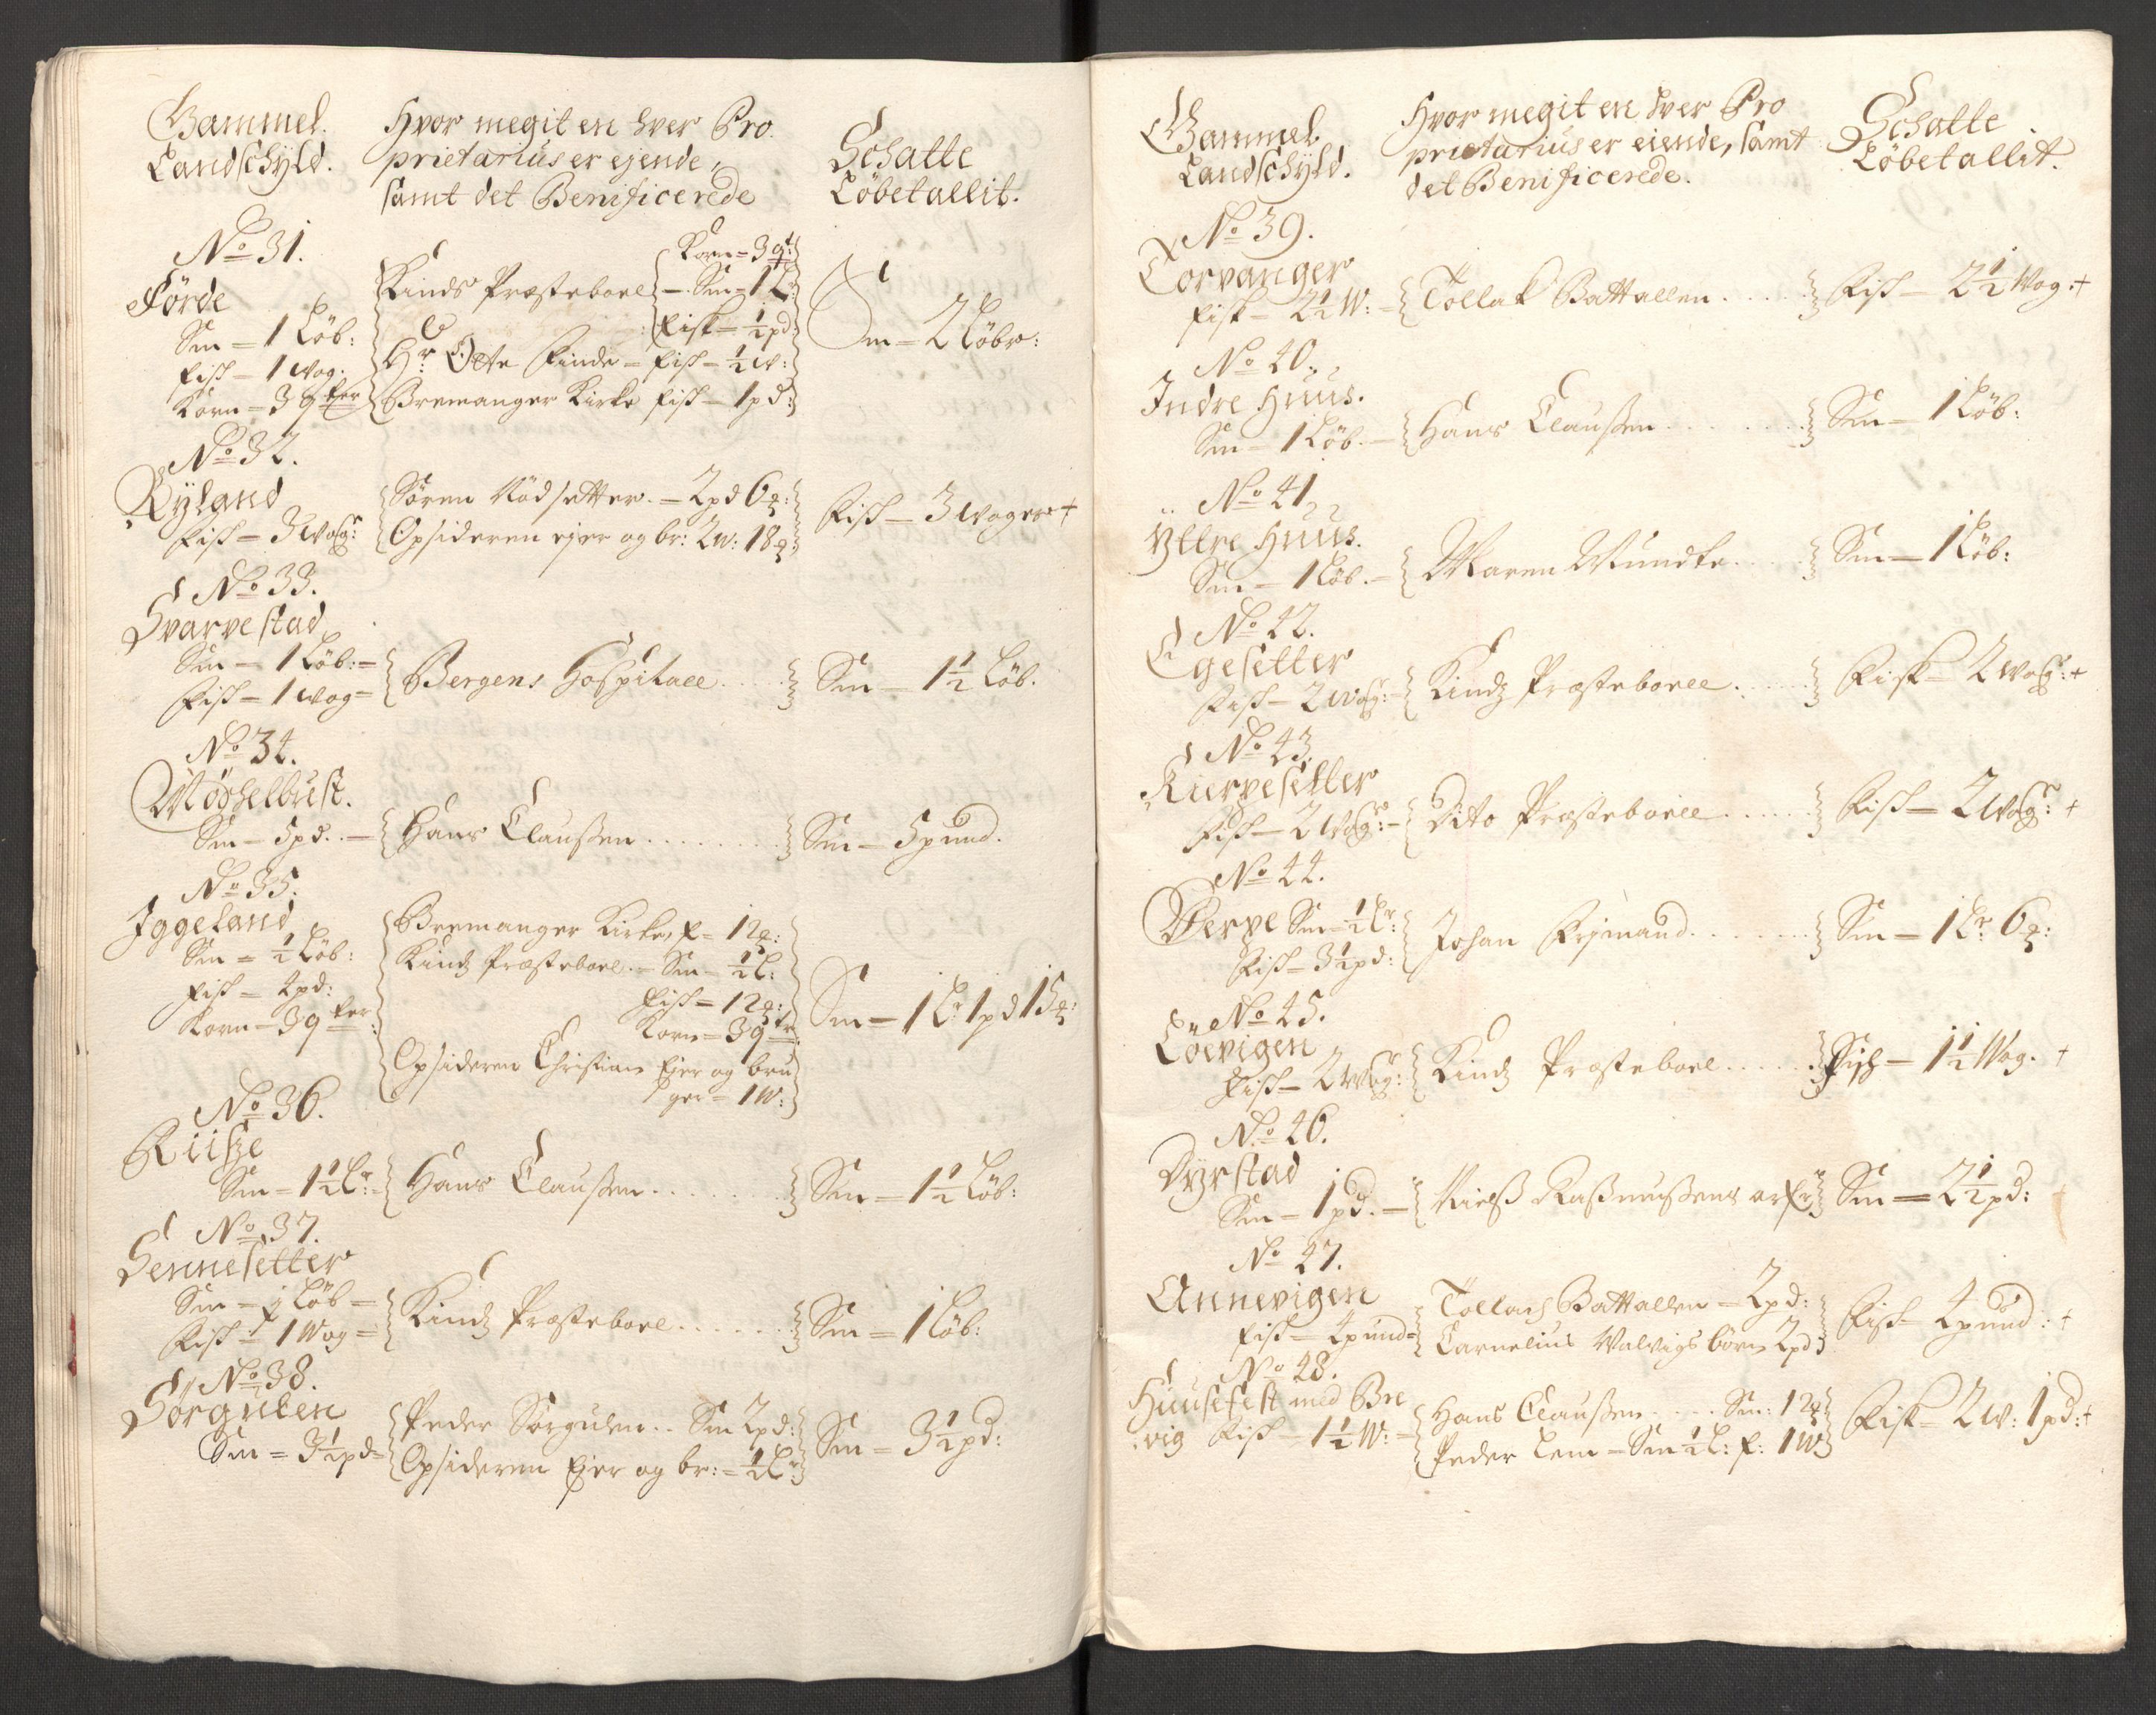 Gammel
Landschyld.
Hvor megit en hver Pro
prietarius er ejende,
samt det Benificerede
Schatte
Löbetallit.
No 31.
Förde
Sm = 1 Löb:
Fisk = 1 Wog:
Korn = 3 qter
Kinds Præsteboel
Korn = 3 qt:
Sm = 1 L:
Fisk = ½ pd
Hr Otte Finde = Fisk = ½ w:
Bremanger Kirke Fisk = 1 pd:
Sm = 2 Löbr:
No 32.
Rÿland
Fisk = 3 Wogr:
Sören Nödsetter. = 2 pd 6
Opsideren ejer og br: 2 w: 18
Fisk = 3 Woger +
No 33.
Svarvestad
Sm = 1 Löb: =
Fisk = 1 Wog =
Bergens Hospitael
Sm = 1½ Löb.
No 34.
Möschelbust.
Sm = 5 pd. =
Hans Claussen
Sm = 5 pund.
No 35.
Iggeland
Sm = ½ Löb:
Fisk = 4 pd:
Korn = 3 qter
Bremanger Kirke, F = 12
Kindz Præsteboel. = Sm = ½ L:
Fisk = 12
Korn = 3 qtr
Opsideren Christian Ejer og bru
ger = 1 W:
Sm = 1 L: 1 pd 15
No 36.
Riisze
Sm = 1½ Lr: =
Hans Claussen
Sm = 1½ Löb:
No 37.
Sennesetter
Sm = ½ Löb =
Fisk = 1 Wog =
Kindz Præsteboel
Sm = 1 Löb:
No 38.
Sörgulen
Sm = 3½ pd =
Peder Sörgulen .. Sm 2 pd:
Opsideren Ejer og br: = ½ Lr
Sm = 3½ pd:
Gammel
Landschyld.
Hvor megit en hver Pro
prietarius er eiende, samt
det Benificerede.
Schatte
Löbetallit.
No 39.
Torvanger
Fisk = 2½ W: =
Tollak Battallen
Fisk = 2½ Wog. +
No 40.
Indre Huus.
Sm = 1 Löb. =
Hans Claussen
Sm = 1 Löb:
No 41
Yttre Huus.
Sm = 1 Löb. =
Maren Mundte
Sm = 1 Löb:
No 42.
Egesetter
Fisk = 2 Wogr: =
Kindz Præsteboell
Fisk = 2 Wogr: +
No 43.
Kiervesetter
Fisk = 2 Wogr: =
Dito Præsteboell
Fisk = 2 Wogr: +
No 44.
Werpe Sm = ½ Lr:
Fisk = 3½ pd:
Johan Frÿmand
Sm = 1 Lr 6
No 45.
Löevigen
Fisk = 2 Wogr:
Kindz Præsteboel
Fisk = 1½ Wog. +
No 46.
Dyrstad
Sm = 1 pd. =
Nielss Rassmussens
Sm = 2½ pd:
No 47.
Annevigen
Fisk = 4 pund =
Tollach Battallen = 2 pd:
Carnelius Walvigs börn 2 pd
Fisk = 4 pund: +
No 48.
Huusefest med Bre
vig Fisk = 1½ W: =
Hans Claussen Sm: 12
Peder Lem = Sm ½ L: F: 1 W
Fisk = 2 w: 1 pd: +